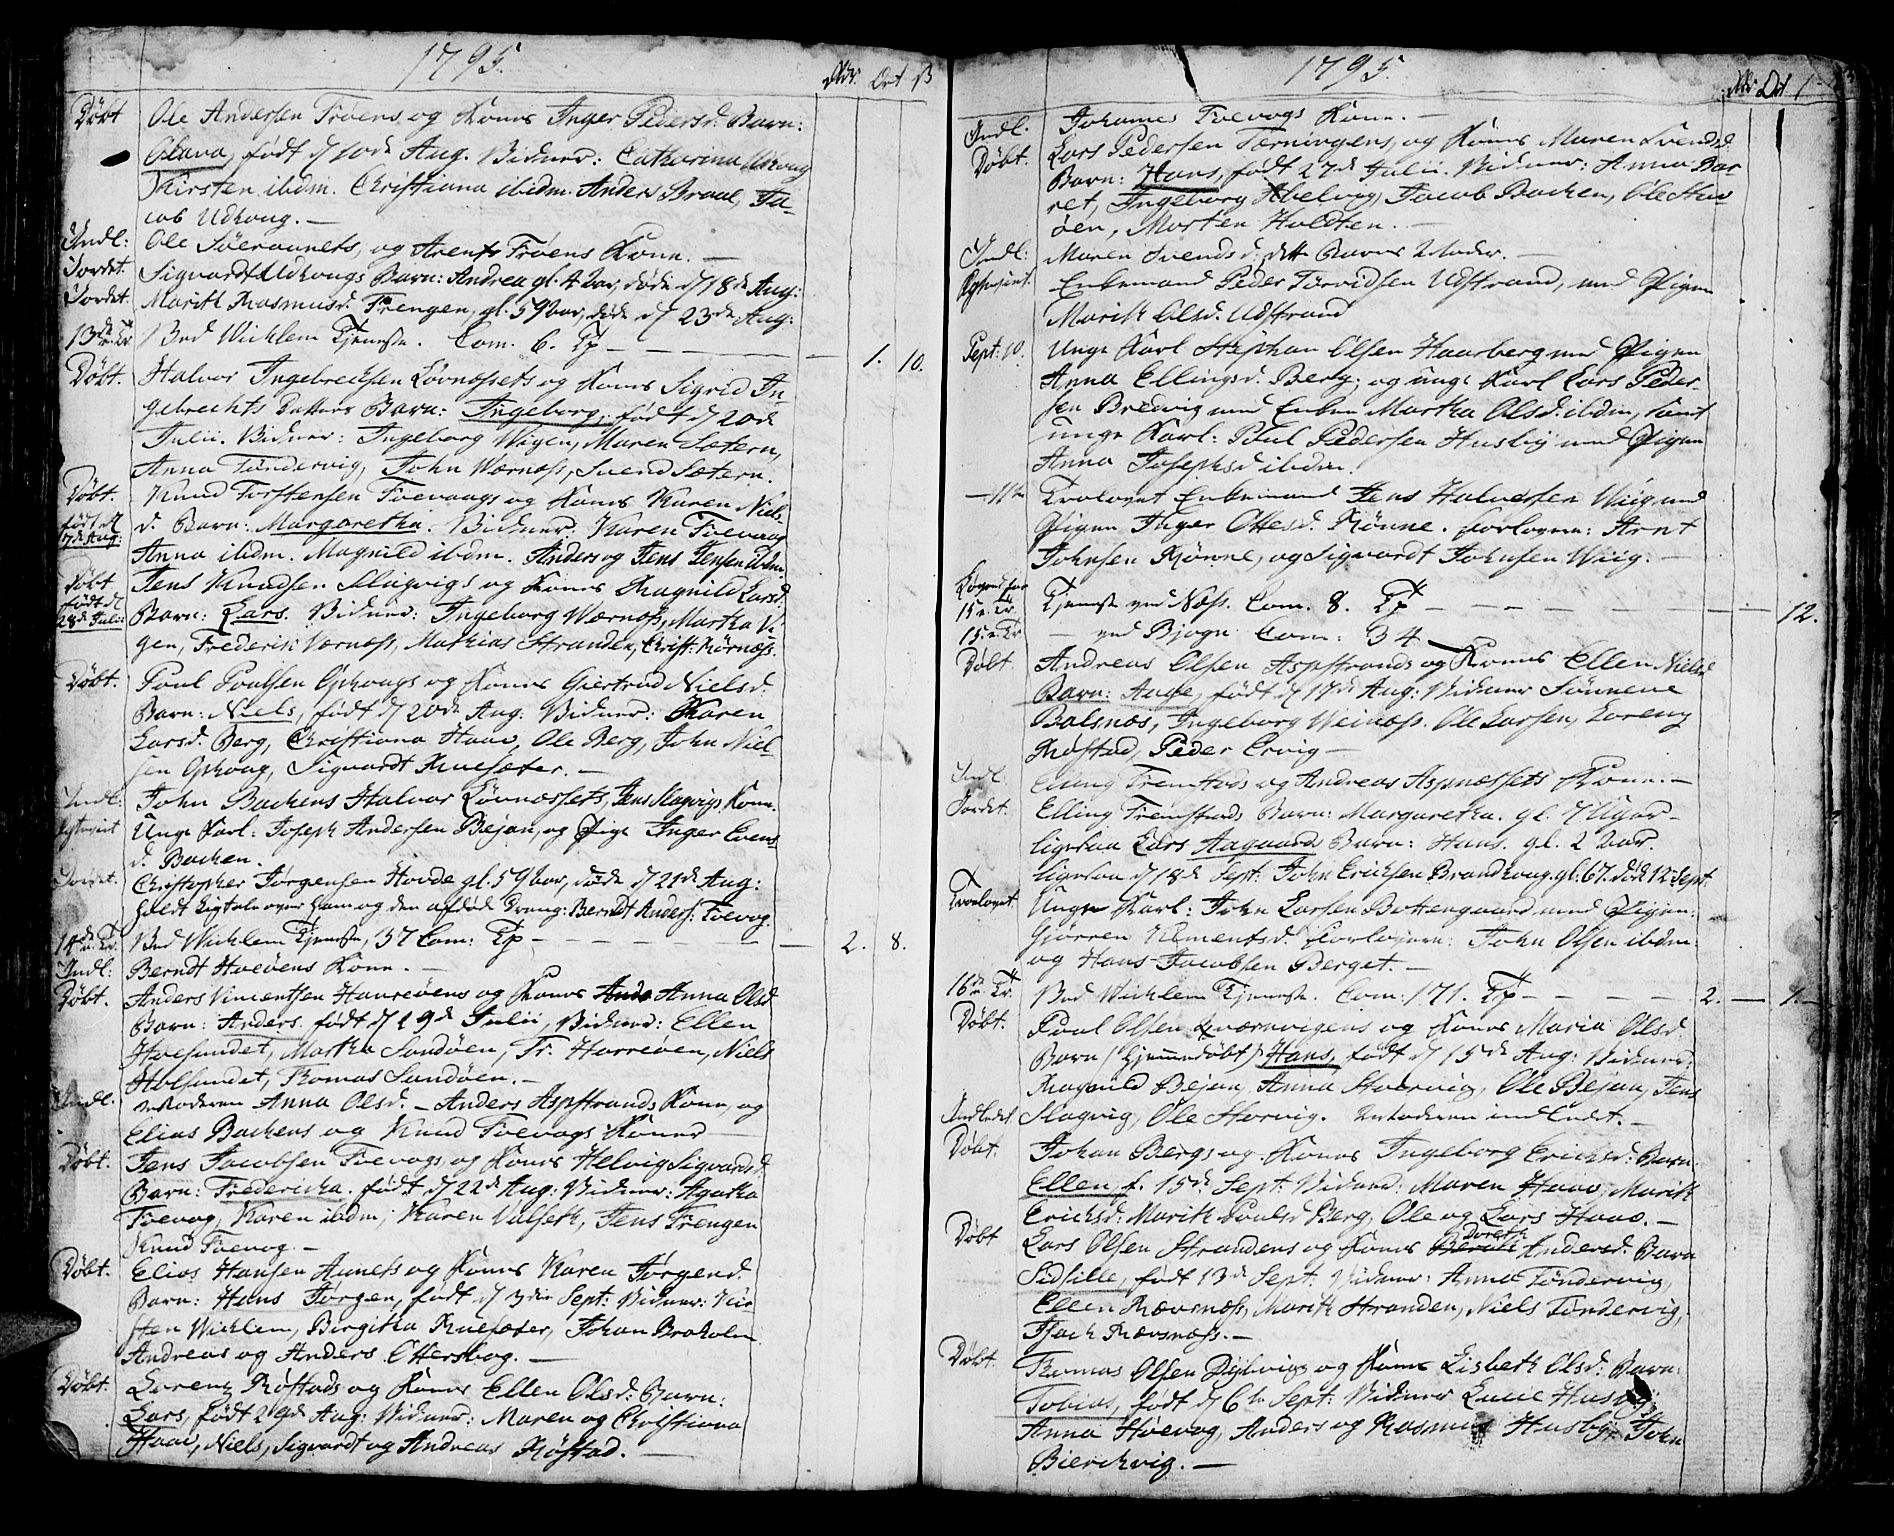 1795.
Rdr. Ort ß
Döbt Ole Andersen Trøens og Kones Inger Pedersd. Barn:
Olava, født d 10de Aug. Vidner: Catharina Udhoug
Kirsten ibdm. Christiana ibdm. Anders Braal, Ja-
cob Udhoug. —
Indl: Ole Söeraunets, og Arents Trøens Kone. —
Jordet. Sigvardt Udhougs Barn: Andrea gl. 4 Aar, døde d 18de Aug:
Jordet. Marith Rasmusd. Trengen, gl. 59 Aar, døde d 23de Aug:
13de e. Tr. Ved Wichlem Tjeneste. Com. 6. Tp — 1. 10.
Døbt. Halvor Ingebrechtsen Løvnæssets og Kones Sigrid In-
gebrechts Datters Barn: Ingeborg, født d 20de
Julii. Vidner: Ingeborg Wigen, Maren Sætern,
Anna Tøndervig, John Wærnæss, Svend Sætern.
Døbt. Knud Torstensen Foevaags og Kones Karen Niels-
født d 17de Aug: d. Barn: Margaretha. Vidner: Karen Foevaag
Anna ibdm. Magnild ibdm. Anders og Jens Jensen ibdm.
Døbt Jens Knudsen Slagvigs og Kones Magnild Larsd.
født d 28de Julii: Barn: Lars. Vidner: Ingeborg Wærnæss, Martha Vi-
gen, Frederik Værnæss, Mathias Stranden, Christ: Kørnæss.
Døbt. Poul Poulsen Ophougs og Kones Giertrud Nielsd.
Barn: Niels, født d 20de Aug: Vidner: Karen
Larsd. Berg, Christiana Haav, Ole Berg, John Niel-
sen Ophoug, Sigvardt Kuesæter. —
Indl: John Backens Halvor Løvnæssets, Jens Slagvigs Kone.
Unge Karl: Joseph Andersen Bejan, og Pige Inger Evens
d. Backen.
Jordet. Christopher Jørgensen Hovde gl. 59 Aar, døde d 21de Aug:
holdt Ligtale over ham og den afdøde Dreng: Berndt Anders: Foevog.
14de e. Tr. Ved Wichlem Tjeneste, 37 Com: Tp — 2. 8.
Indl: Berndt Hoeøens Kone. —
Døbt. Anders Vincentsen Haureøens og Kones Anna Olsd
Barn: Anders. født d 29de Julii, Vidner: Ellen
Hoesundet, Martha Sandøen, Tr. Harreøen, Niels
Holsundet, Thomas Sandøen. —
Indl. Moderen Anna Olsd. — Anders Aspstrands Kone, og
Elias Backens og Knud Foevogs Koner —
Døbt. Jens Jacobsen Foevogs og Kones Helvig Sigvardsd.
Barn: Fredericka. født d 22de Aug: Vidner: Agatha
Foevog, Karen ibdm, Karen Valseth, Jens Trengen
Knud Foevog. —
Døbt. Elias Hansen Aunets og Kones Karen Jørgend.
Barn: Hans Jørgen, født d 3die Sept: Vidner: Kir-
sten Wichlem, Birgitha Kuesæter, Johan Broholm
Andreas og Anders Ottersbog. —
Døbt. Lorenz Røstads og Kones Ellen Olsd: Barn:
Lars, født 29de Aug: Vidner: Maren og Christiana
Haav, Niels, Sigvardt og Andreas Røstad. —
1795.
Rdr Ort
Indl. Johannes Foevogs Kone. —
Døbt. Lars Pedersen Tærningens, og Kones Maren Svendsd.
Barn: Hans, født 27de Julii. Vidner: Anna Bar-
ret, Ingeborg Abelvig, Jacob Backen, Ole
øen, Morten Holdten. —
Indl: Maren Svendsd: dett Barns Moder. —
Enkemand Peder Torvidsen Udstrand, med Pigen
Marith Olsd. Udstrand
Sept: 10. Unge Karl Stephan Olsen Haarberg med Pigen
Anna Ellingsd. Berg; og unge Karl Lars Peder-
sen Bredvig med Enken Martha Olsd. ibdm, samt
unge Karl: Poul Pedersen Husby med Pigen
Anna Josephsd ibdm.
— 11te Trolovet Enkemand Jens Halvorsen Wiig med
Pigen Inger Ottesd. Rønne. Forlovere: Arnt
Johnsen Rønne, og Sigvardt Johnsen Wiig. —
15 e. Tr. Tjeneste ved Næss. Com. 8. Tp — 12.
15. e. Tr. — ved Bjogn. Com: 34
Døbt Andreas Olsen Aspstrands og Kones Ellen Nielsd
Barn: Aage, født d 17de Aug: Vidner Sønnene
Balsnæs, Ingeborg Weinæss. Ole Larsen, Lorenz
Røstad, Peder Ervig —
Indl. Elling Fremstads og Andreas Aspnæssets Kone. —
Jordet. Elling Fremstads Barn: Margaretha. gl. 7 Uger —
ligesaa Lars Aagaards Barn: Hans. gl. 2 Aar.
ligesaa d 18de Sept: John Ericksen Brandhoug. gl. 67. døde 12te Sept.
Troelovet. Unge Karl: John Larsen Bottengaard med Pigen:
Gjørren Klementsd. Forlovere: John Olsen ibdm:
og Hans Jacobsen Berget. —
16de e. Tr. Ved Wichlem Tjeneste. Com: 171. Tp — 2. — 1. —
Døbt. Poul Olsen Qværnvigens og Kones Maria Olsd.
Barn (hjemmedøbt) Hans, født d 15de Aug: Vidner:
Magnild Bejan, Anna Storvig, Ole Bejan, Jens
Indledet Slagvig, Ole Storvig. Moderen indledet. —
Døbt. Johan Bergs og Kones Ingeborg Ericksd: Barn
Ellen, f. 15de Sept: Vidner: Maren Haav, Marith
Ericksd: Marith Poulsd Berg, Ole og Lars Haav. —
Døbt Lars Olsen Strandens og Kones Dorethe Andersd. Barn
Sidsille, født 13de Sept: Vidner: Anna Tøndervig,
Ellen Rævsnæss, Marith Stranden, Niels Tøndervig,
Isach Rævsnæss. —
Døbt. Thomas Olsen Dyhvigs og Kones Lisbeth Olsd: Barn:
Tobias, født d 6te Sept: Vidner Lucie Husby,
Anna Høevog, Anders og Rasmus Husby. John
Bierchvig. —